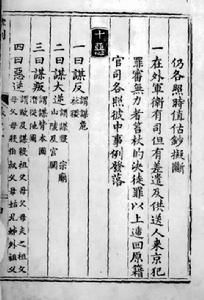 仍各照時值估鈔擬斷
一在外軍衛有司但有差遣及供送人來京犯
罪審無力者笞杖的決徒罪以上遞回原籍
官司各照彼中事例發落
十惡
一曰謀反
謂謀危
社稷
二曰謀大逆
謂謀毀 宗廟
山陵及宮闕
三曰謀叛
謂謀背本國
潛從他國
四曰惡逆
謂毆及謀殺祖父母父母夫之祖父
母父母殺伯叔父母姑兄姊外祖父